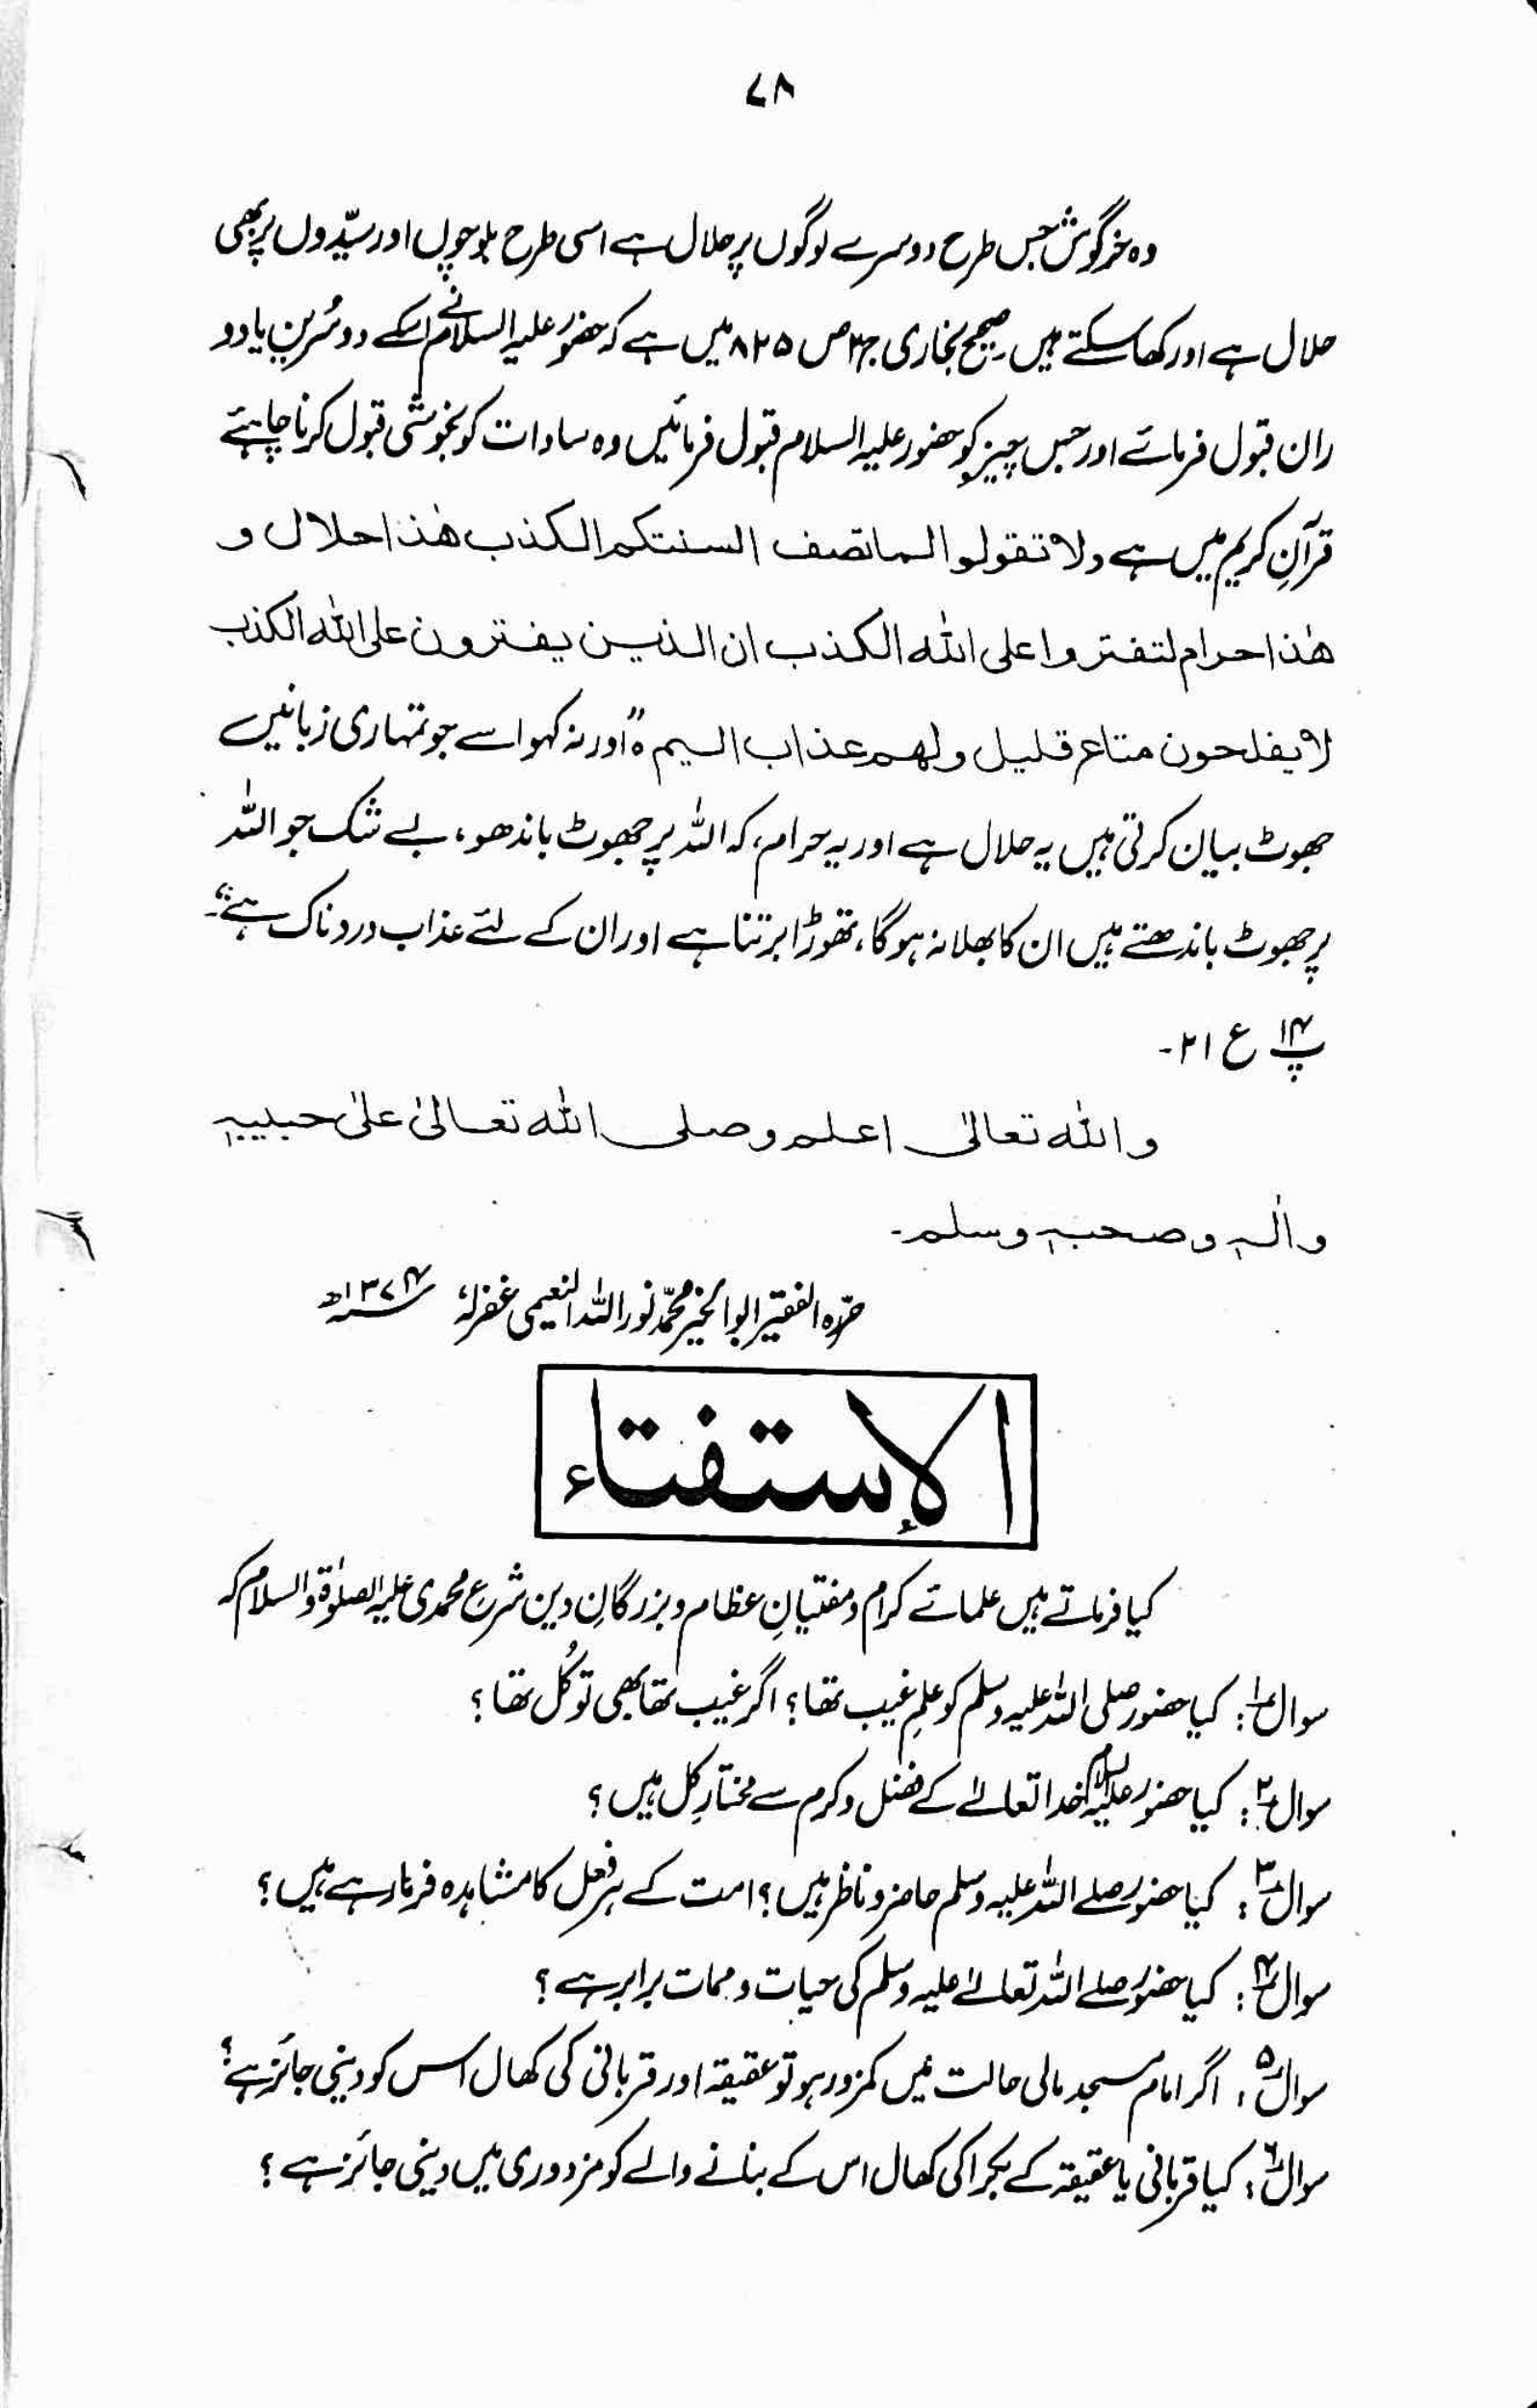 ۷۸
وہ خرگوش جس طرح دوسرے لوگوں پر حلال ہے اسی طرح بلوچوں اور سیّدوں پر بھی
حلال ہے اور کھا سکتے ہیں۔ صحیح بخاری ج۲ ص ۸۲۵ میں ہے کہ حضور علیہ السلام نے اسکے دو سُرین یا دو
ران قبول فرمائے اور جس چیز کو حضور علیہ السلام قبول فرمائیں وہ سادات کو بخوشی قبول کرنا چاہئے
قرآنِ کریم میں ہے ولا تقولوا لما تصف السنتکم الکذب ھٰذا حلال و
ھٰذا حرام لتفتروا علی اللہ الکذب ان الذین یفترون علی اللہ الکذب
لا یفلحون متاع قلیل ولھم عذاب الیم ہ "اور نہ کہو اسے جو تمہاری زبانیں
جھوٹ بیان کرتی ہیں یہ حلال ہے اور یہ حرام، کہ اللہ پر جھوٹ باندھو، بے شک جو اللہ
پر جھوٹ باندھتے ہیں ان کا بھلا نہ ہوگا، تھوڑا برتنا ہے اور ان کے لئے عذاب دردناک ہے"۔
پ۱۴ ع ۲۱۔
واللہ تعالیٰ اعلم وصلی اللہ تعالیٰ علیٰ حبیبہٖ
واٰلہٖ وصحبہٖ وسلم۔
حرّہ الفقیر ابوالخیر محمّد نور اللہ النعیمی غفرلہٗ ۱۳۷۴ھ
الإستفتاء
کیا فرماتے ہیں علمائے کرام و مفتیانِ عظام و بزرگانِ دین شرع محمدی علیہ الصلوٰۃ والسلام کہ
سوال ۱: کیا حضور صلی اللہ علیہ وسلم کو علمِ غیب تھا؟ اگر غیب تھا بھی تو کُل تھا؟
سوال ۲: کیا حضور علیہ السلام خدا تعالےٰ کے فضل و کرم سے مختارِ کل ہیں؟
سوال ۳: کیا حضور صلے اللہ علیہ وسلم حاضر و ناظر ہیں؟ امت کے ہر فعل کا مشاہدہ فرما رہے ہیں؟
سوال ۴: کیا حضور صلے اللہ تعالےٰ علیہ وسلم کی حیات و ممات برابر ہے؟
سوال ۵: اگر امام مسجد مالی حالت میں کمزور ہو تو عقیقہ اور قربانی کی کھال اس کو دینی جائز ہے؟
سوال ۶: کیا قربانی یا عقیقہ کے بکرا کی کھال اس کے بنانے والے کو مزدوری میں دینی جائز ہے؟